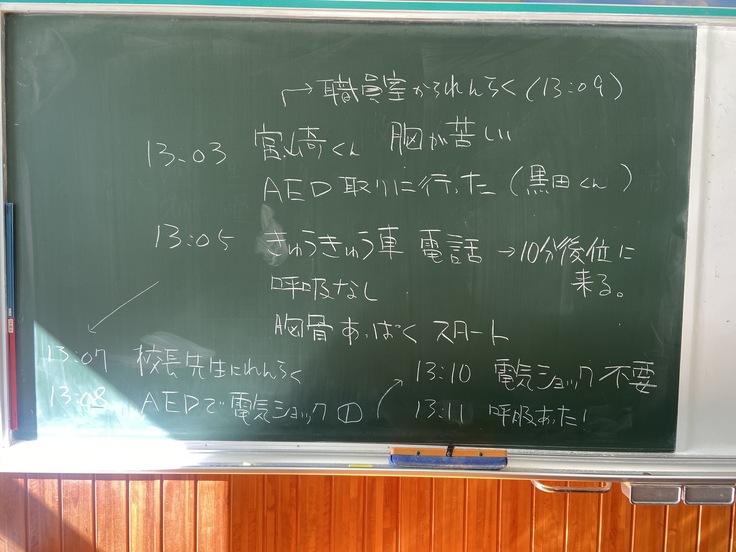 →職員室かられんらく(13:09)
13:03 宮崎くん 胸が苦しい
AED取りに行った(黒田くん)
13:05 きゅうきゅう車 電話 →10分後位に
来る。
呼吸なし
胸骨あっぱく スタート
13:07 校長先生にれんらく
13:08 AEDで電気ショック①
13:10 電気ショック不要
13:11 呼吸あった!